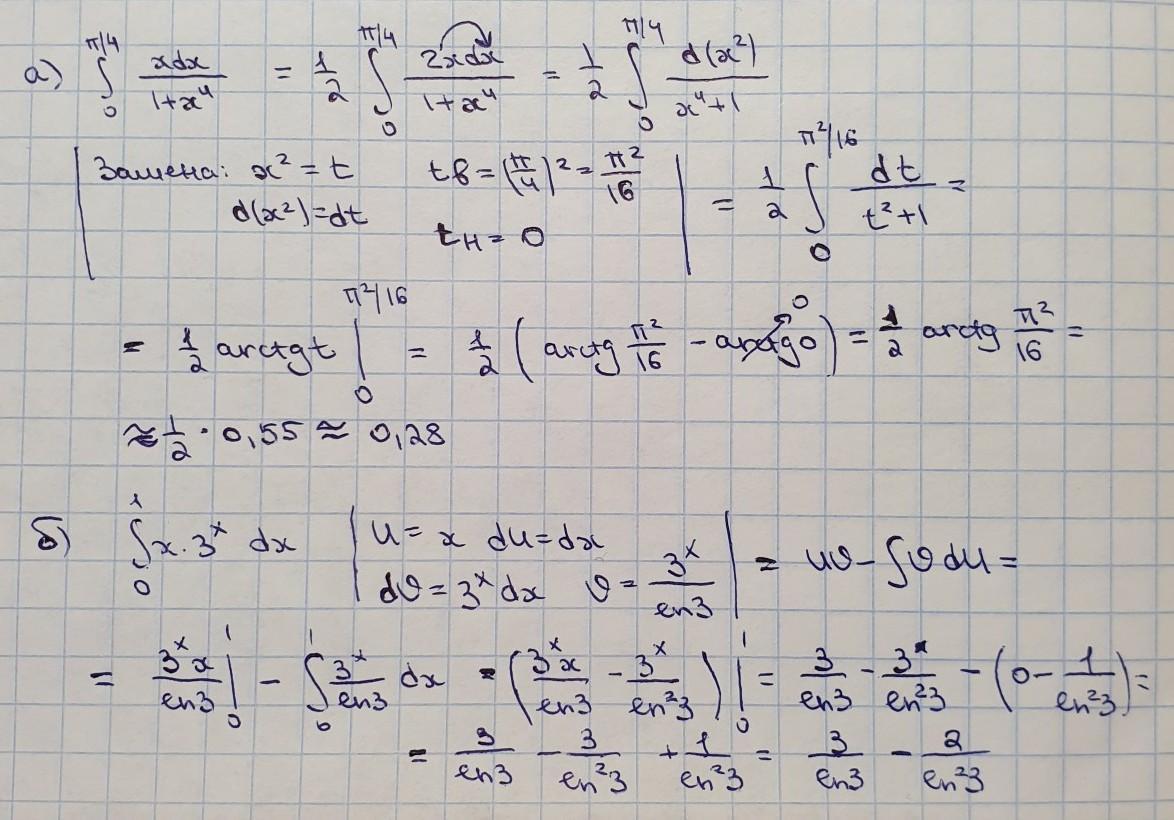 а) ∫₀^{π/4} xdx/(1+x⁴) = 1/2 ∫₀^{π/4} 2xdx/(1+x⁴) = 1/2 ∫₀^{π/4} d(x²)/(x⁴+1)
| Замена: x² = t tв = (π/4)² = π²/16 | = 1/2 ∫₀^{π²/16} dt/(t²+1) =
d(x²)=dt tн = 0
= 1/2 arctgt |₀^{π²/16} = 1/2 (arctg π²/16 - arctg0 → 0) = 1/2 arctg π²/16 =
≈ 1/2 · 0,55 ≈ 0,28
б) ∫₀¹ x·3ˣ dx | u = x du = dx | = uv - ∫v du =
dv = 3ˣdx v = 3ˣ/ln3
= 3ˣx/ln3 |₀¹ - ∫₀¹ 3ˣ/ln3 dx = (3ˣx/ln3 - 3ˣ/ln²3) |₀¹ = 3/ln3 - 3ˣ/ln²3 - (0 - 1/ln²3) =
= 3/ln3 - 3/ln²3 + 1/ln²3 = 3/ln3 - 2/ln²3